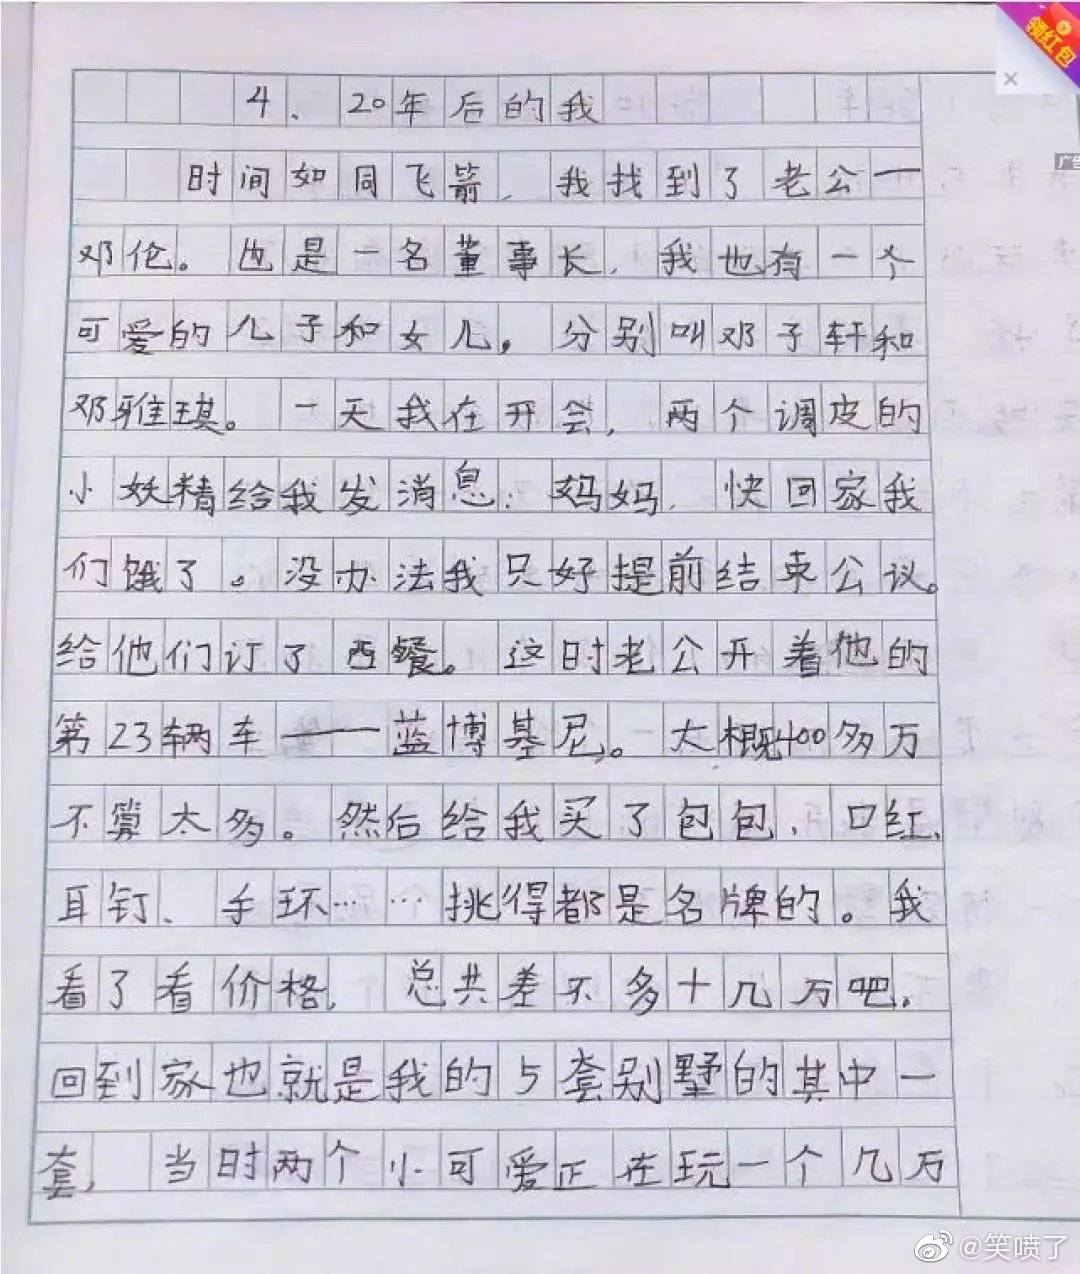 领红包
广告
4、20年后的我
时间如同飞箭，我找到了老公一
邓伦。也是一名董事长，我也有一个
可爱的儿子和女儿，分别叫邓子轩和
邓雅琪。一天我在开会，两个调皮的
小妖精给我发消息：妈妈，快回家我
们饿了。没办法我只好提前结束公议。
给他们订了西餐。这时老公开着他的
第23辆车——蓝博基尼。大概400多万
不算太多。然后给我买了包包、口红、
耳钉、手环……挑得都是名牌的。我
看了看价格，总共差不多十几万吧，
回到家也就是我的5套别墅的其中一
套，当时两个小可爱正在玩一个几万
@笑喷了